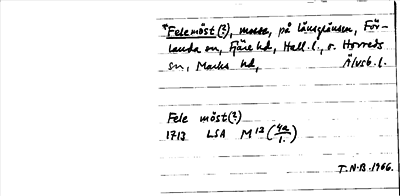 *Felemöst(?), mosse, på länsgränsen, För-
landa sn, Fjäre hd, Hall. l., o. Horreds
sn, Marks hd, Älvsb. l.
Fele möst(?)
1713 LSA M 12 (42/1.)
T.N.B. 1966.